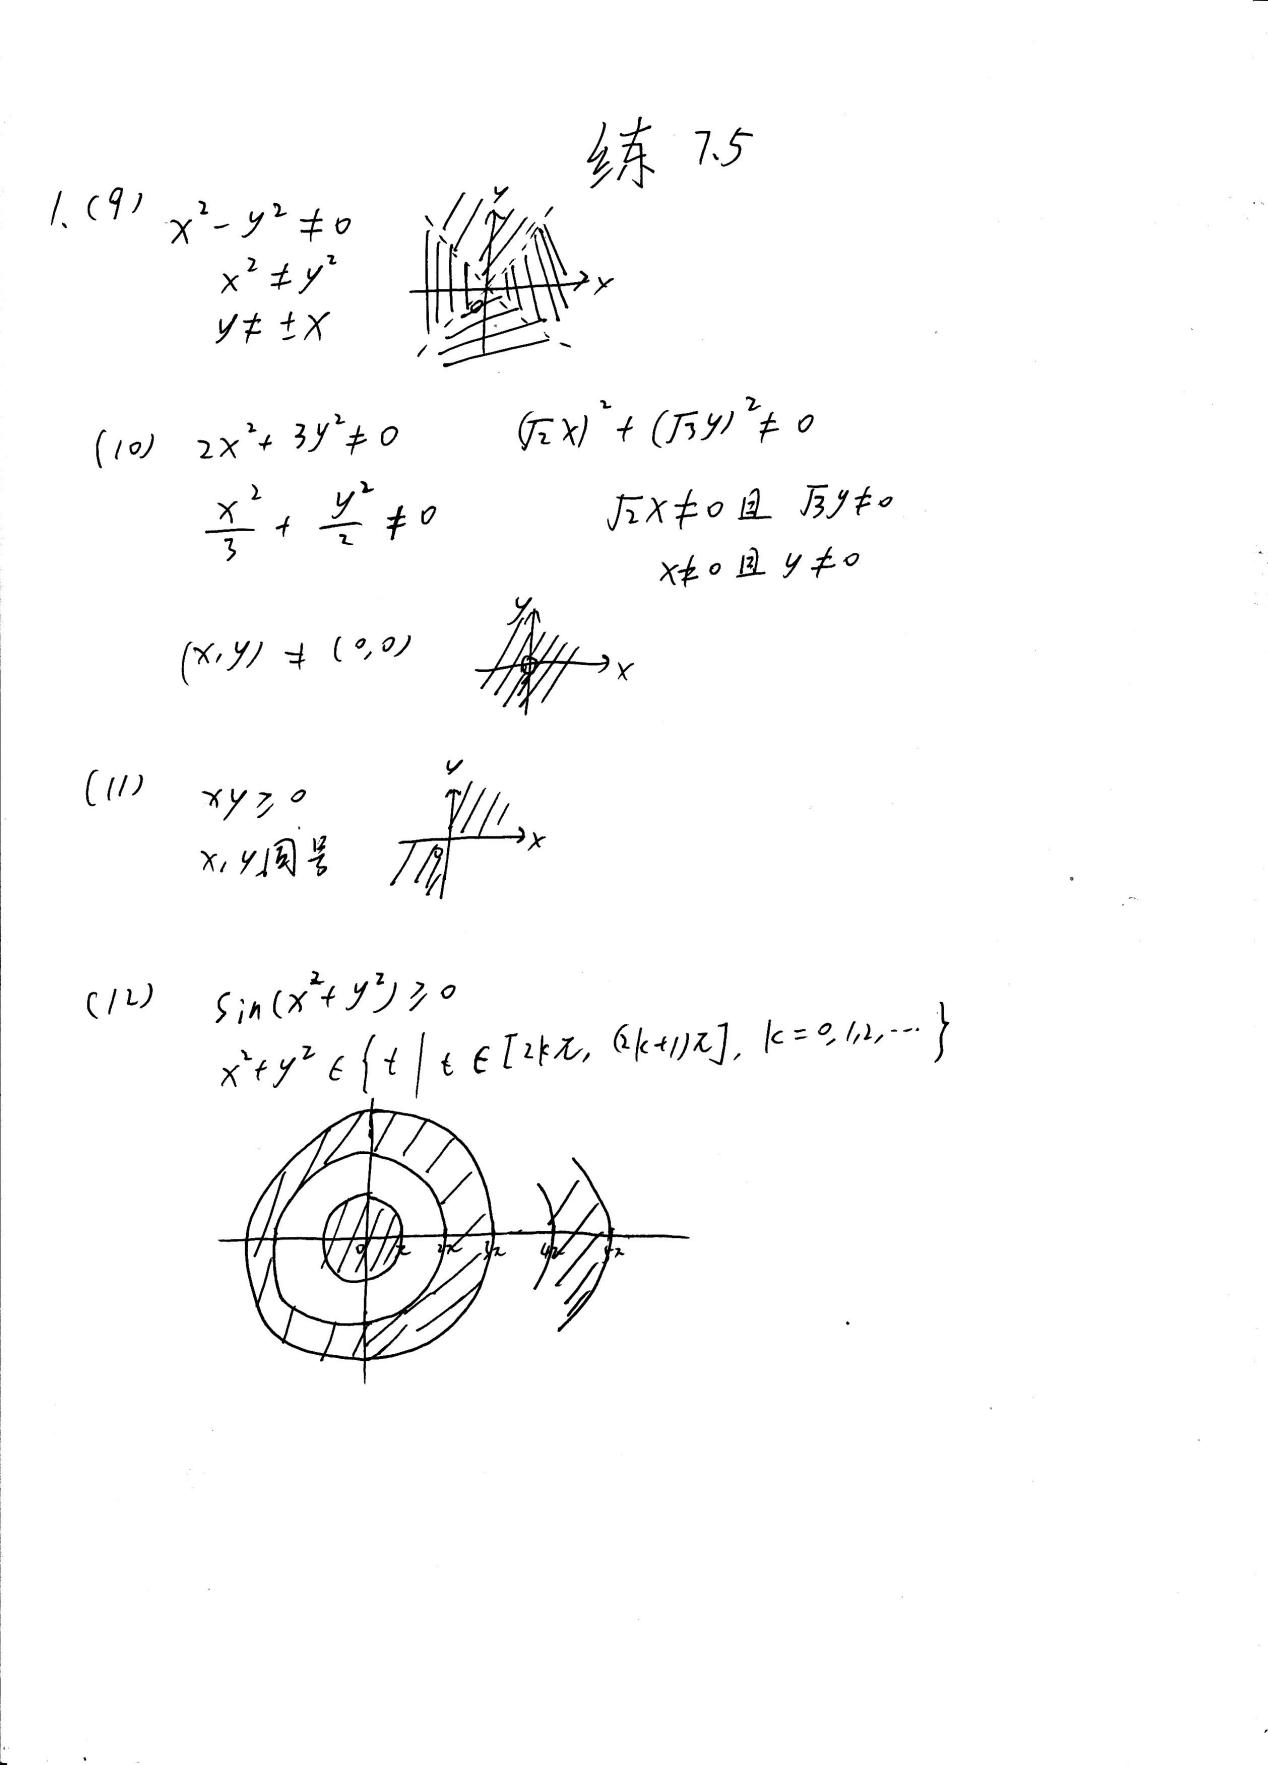 练 7.5
1. (9) x² - y² ≠ 0
x² ≠ y²
y ≠ ±x
y
x
0
(10) 2x² + 3y² ≠ 0 (√2x)² + (√3y)² ≠ 0
x²/3 + y²/2 ≠ 0 √2x ≠ 0 且 √3y ≠ 0
x ≠ 0 且 y ≠ 0
(x, y) ≠ (0,0)
y
x
(11) xy ≥ 0
x, y 同号
y
x
0
(12) sin(x² + y²) ≥ 0
x² + y² ∈ { t | t ∈ [2kπ, (2k+1)π], k = 0,1,2,… }
0 π 2π 3π 4π 5π